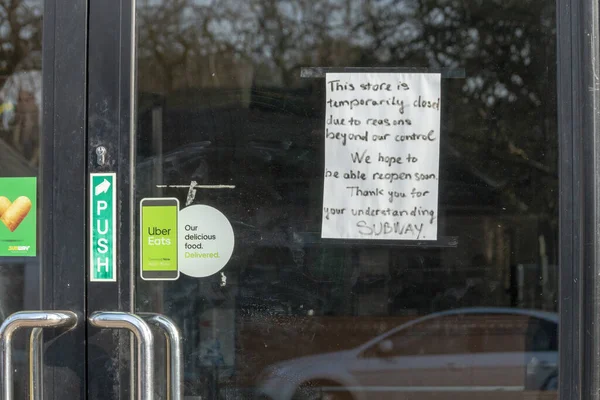 This store is
temporarily closed
due to reasons
beyond our control
We hope to
be able reopen soon.
Thank you for
your understanding
SUBWAY.
PUSH
Uber
Eats
Our
delicious
food.
Delivered.
SUBWAY